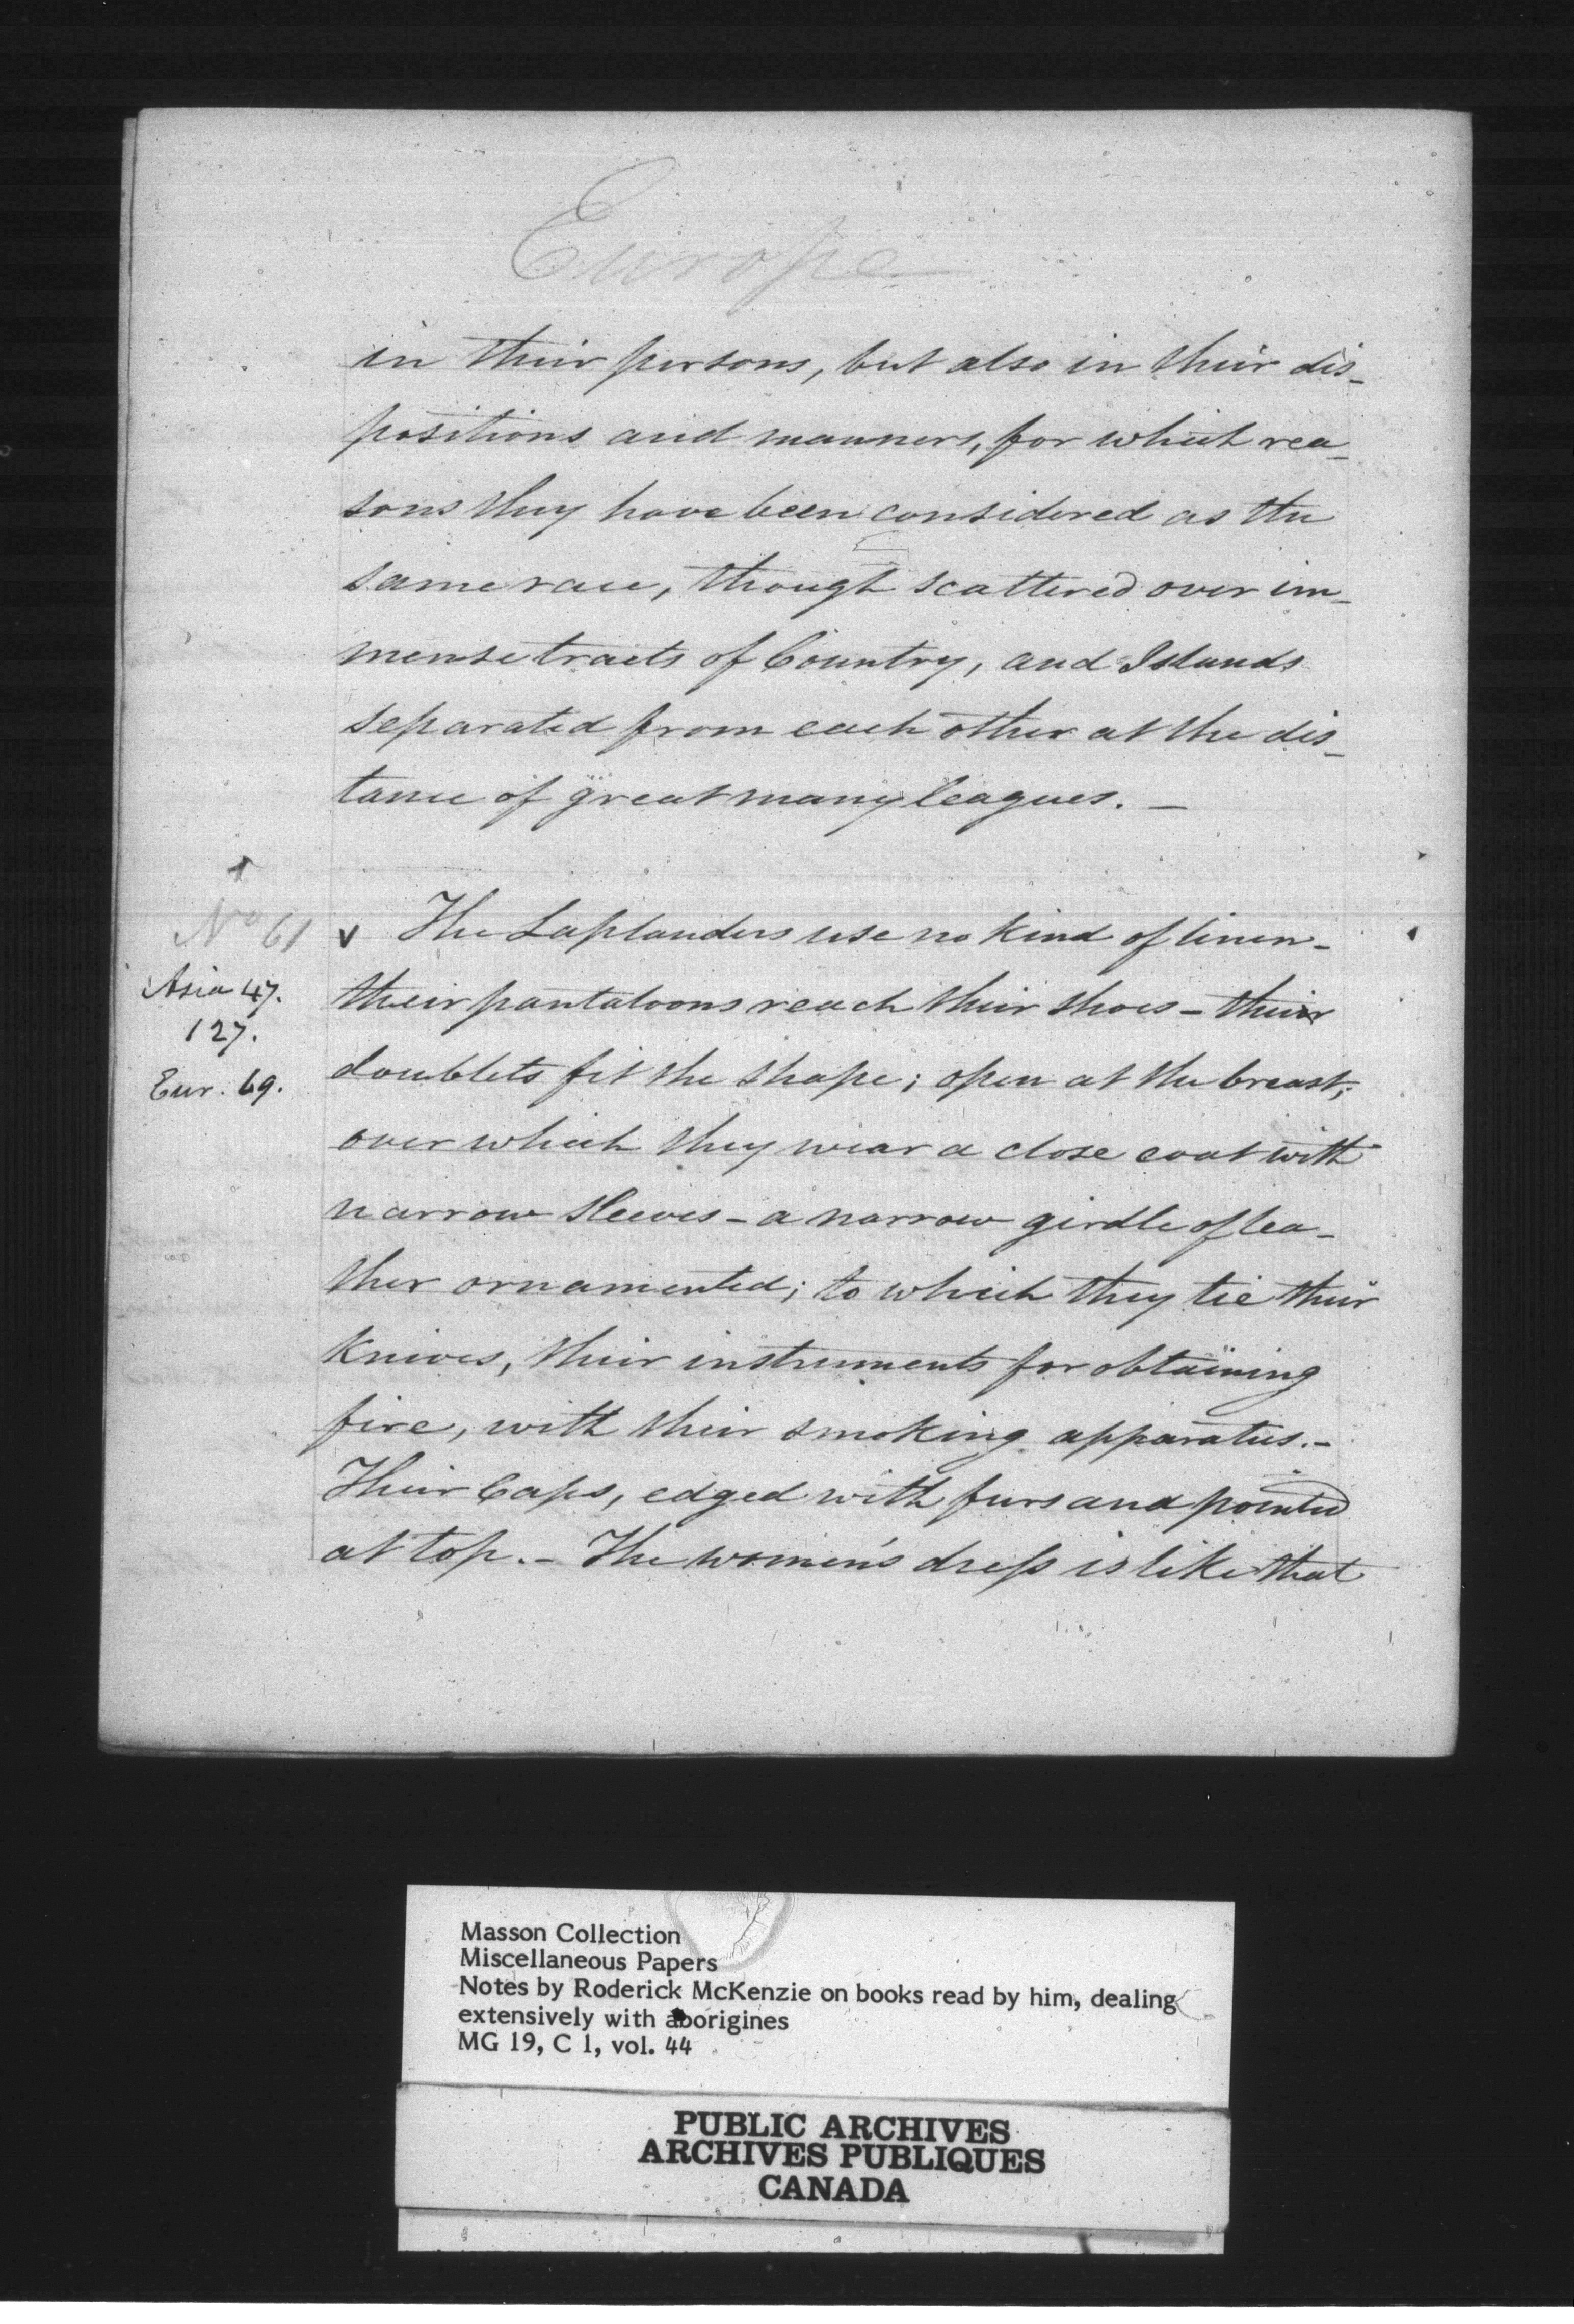 Europe
in their persons, but also in their dis-
positions and manners, for which rea-
sons they have been considered as the
same race, though scattered over im-
mense tracts of Country, and Islands
separated from each other at the dis-
tance of great many leagues. -
No 61
v The Laplanders use no kind of linen -
Asia 47.
their pantaloons reach their shoes - their
127.
doublets fit the shape; open at the breast;
Eur. 69.
over which they wear a close coat with
narrow sleeves - a narrow girdle of lea-
ther ornamented; to which they tie their
knives, their instruments for obtaining
fire, with their smoking apparatus. -
Their Caps, edged with furs and pointed
at top. - The women's dress is like that
Masson Collection
Miscellaneous Papers
Notes by Roderick McKenzie on books read by him, dealing
extensively with aborigines
MG 19, C 1, vol. 44
PUBLIC ARCHIVES
ARCHIVES PUBLIQUES
CANADA